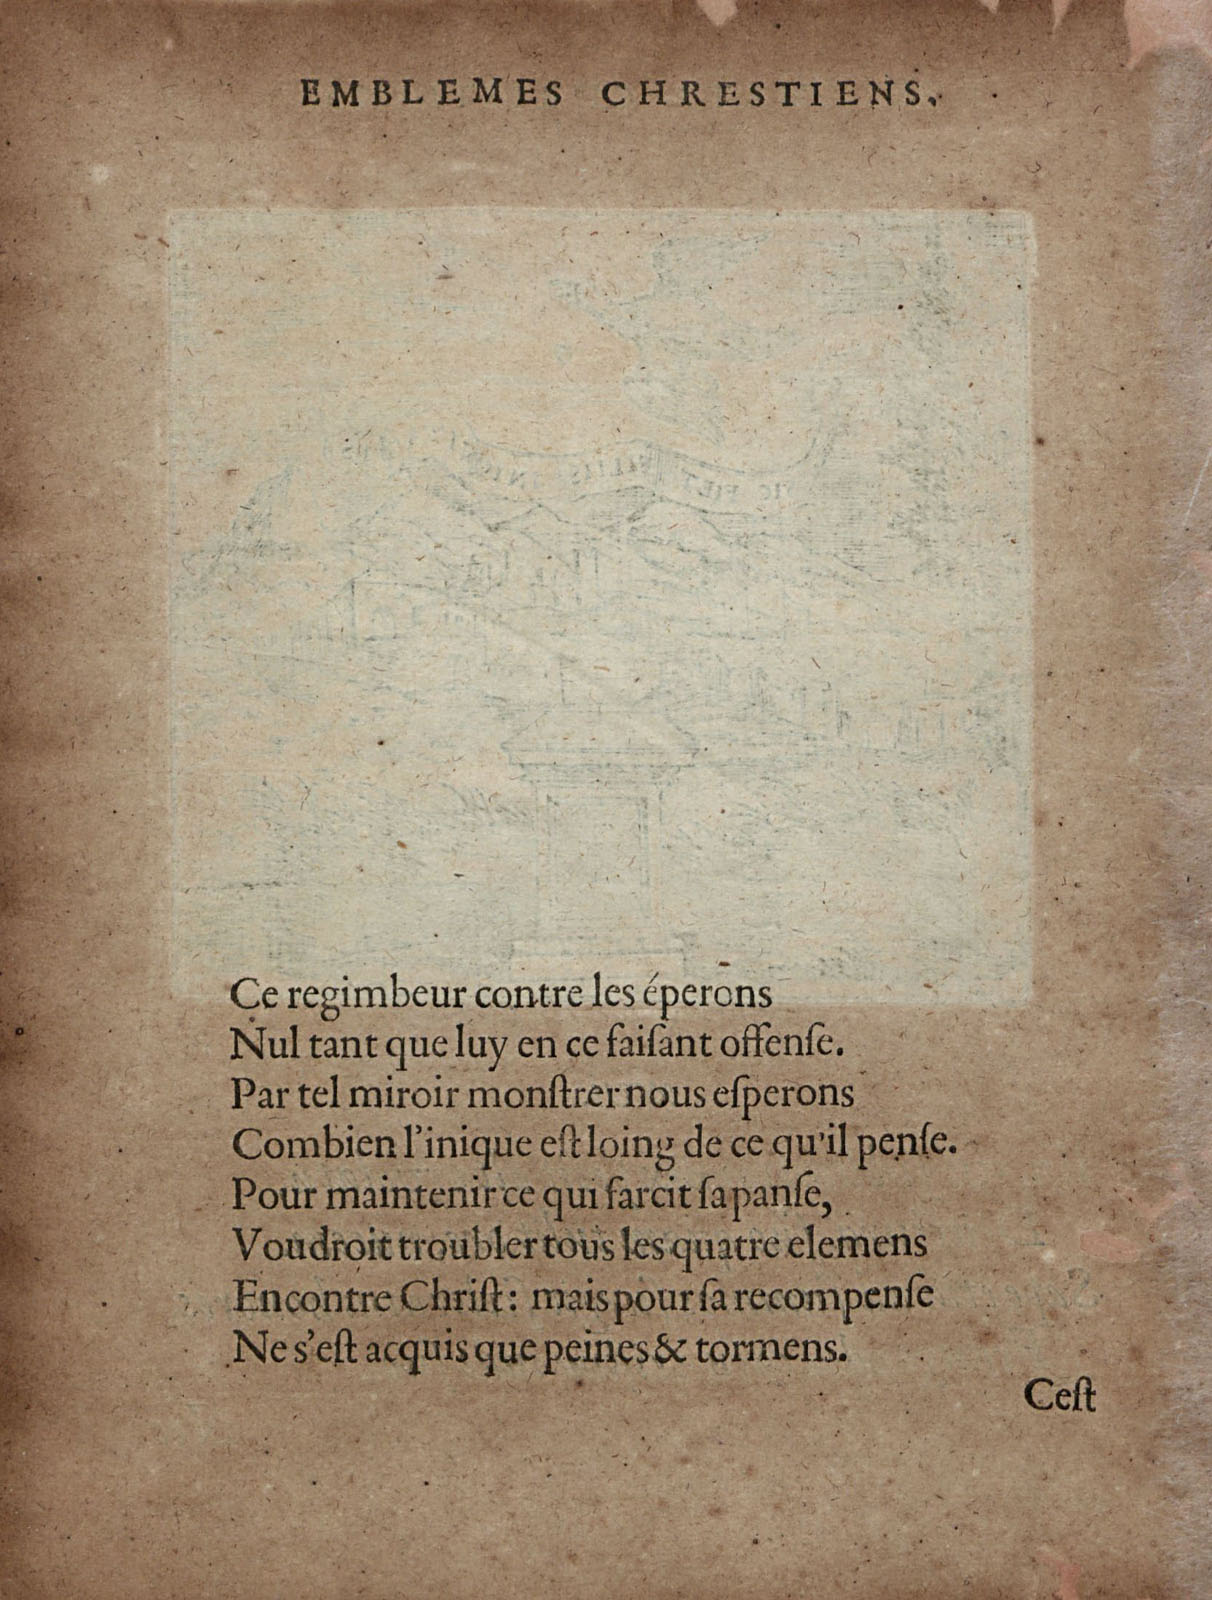 EMBLEMES CHRESTIENS.
Ce regimbeur contre les éperons
Nul tant que luy en ce faiſant offenſe.
Par tel miroir monſtrer nous eſperons
Combien l'inique eſt loing de ce qu'il penſe.
Pour maintenir ce qui farcit ſa panſe,
Voudroit troubler tous les quatre elemens
Encontre Chriſt: mais pour ſa recompenſe
Ne s'eſt acquis que peines & tormens.
Ceſt